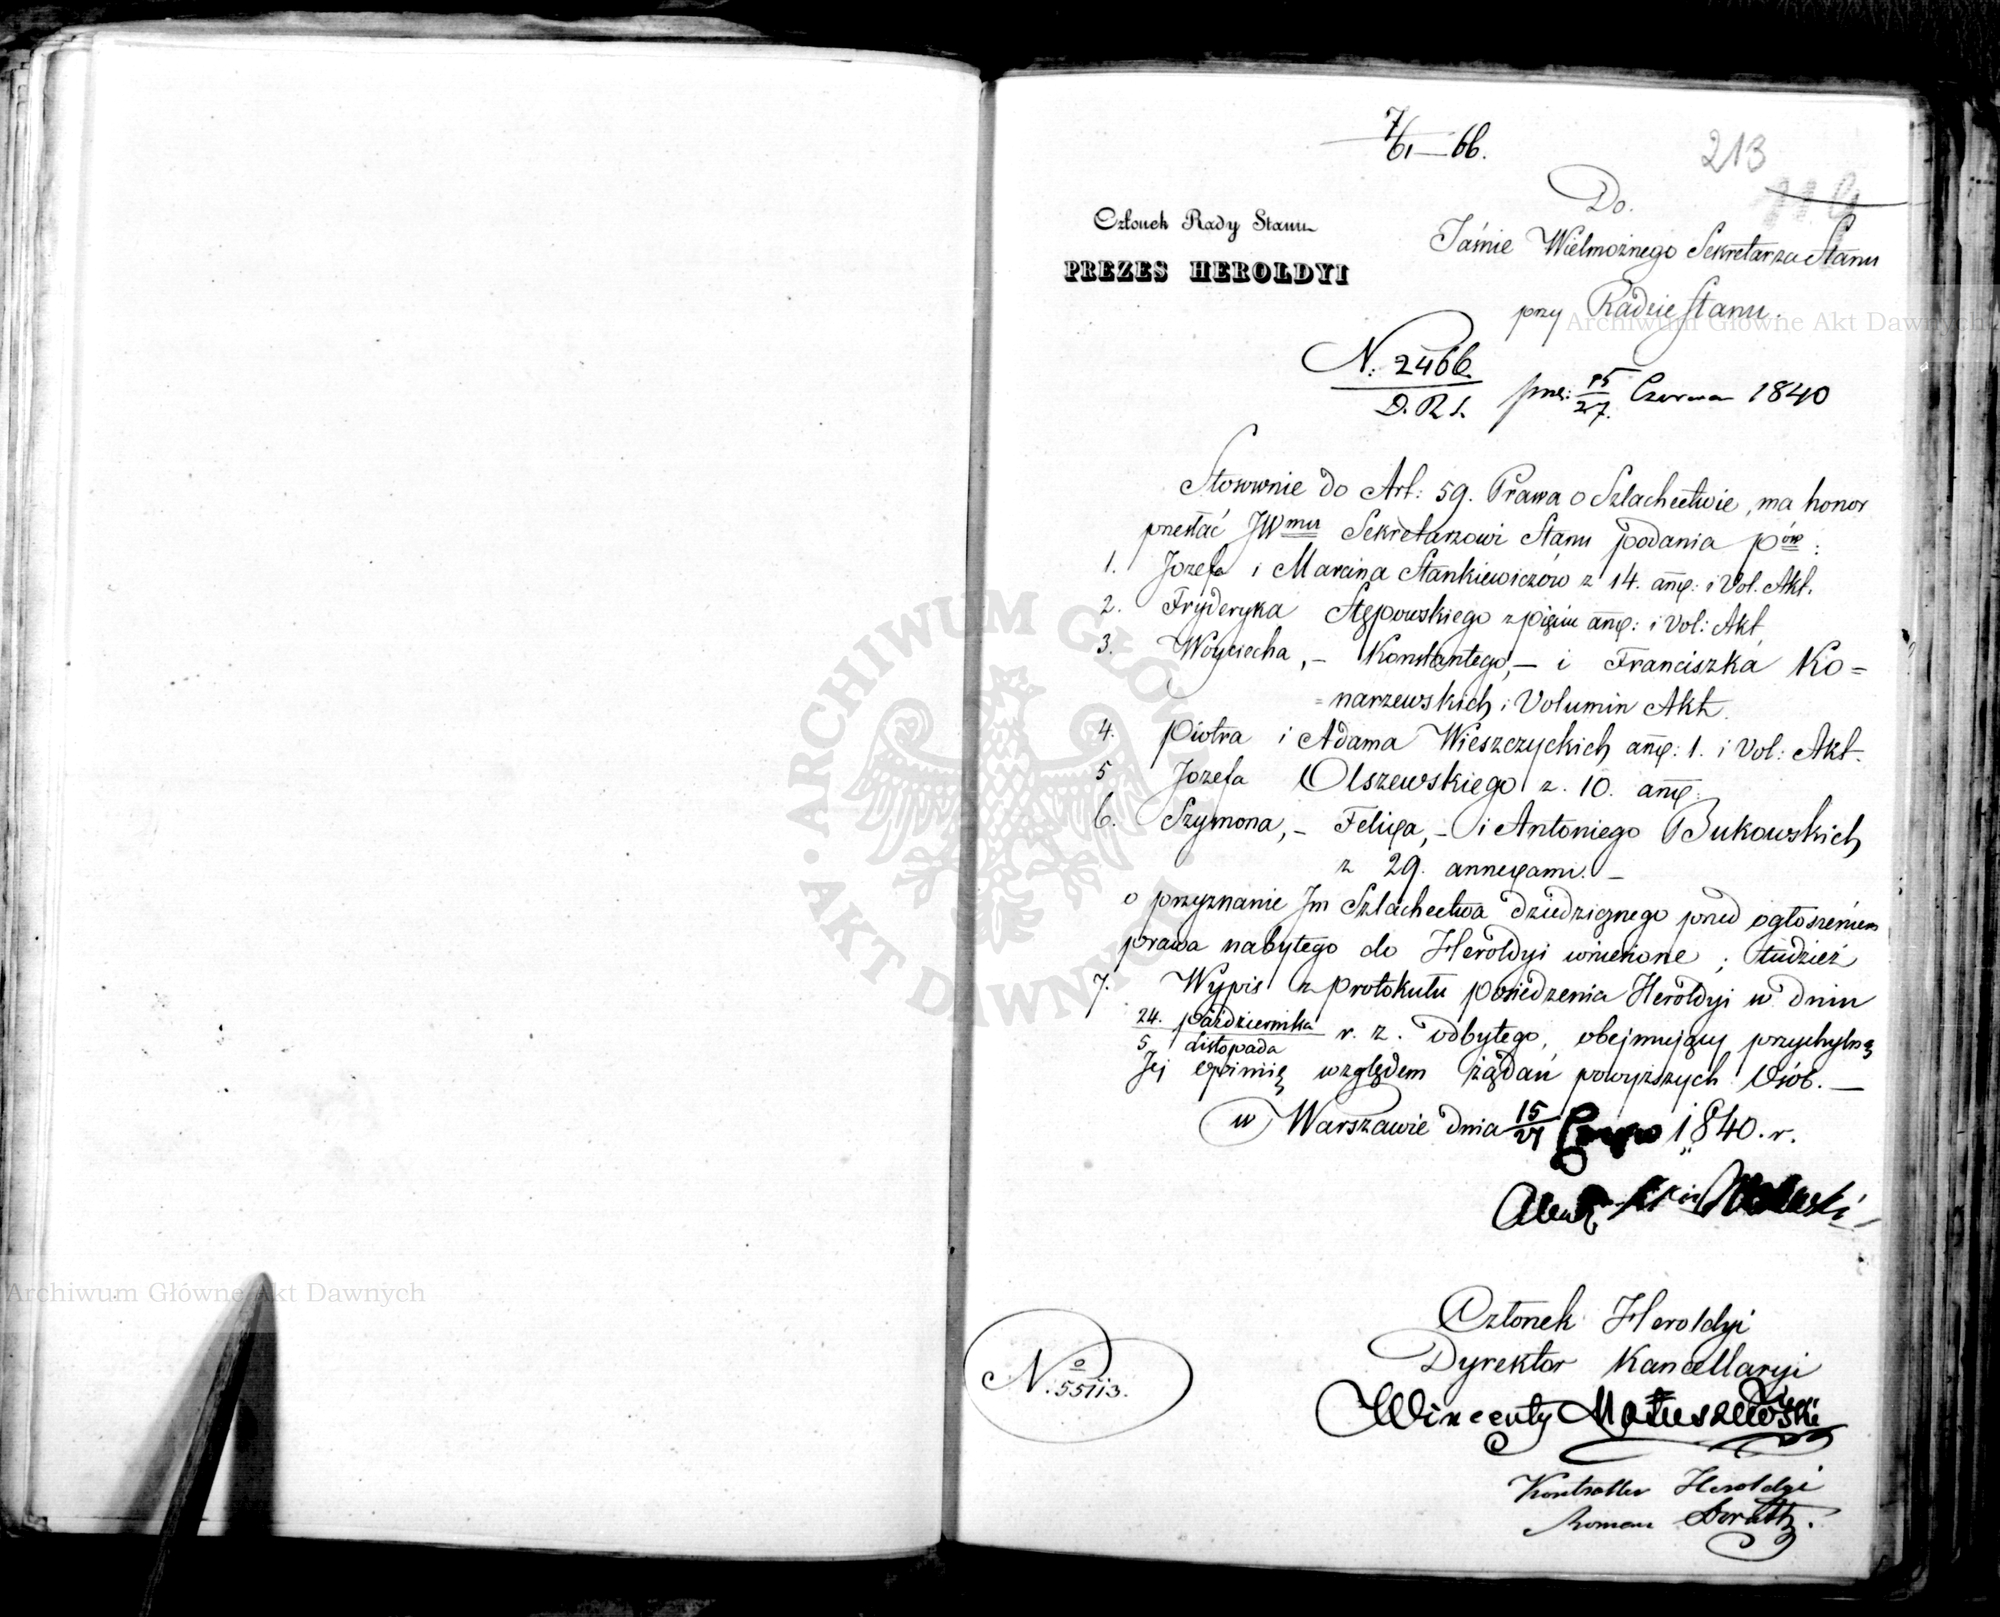 7/61—66.
213
Do.
Jaśnie Wielmożnego Sekretarza Stanu
przy Radzie Stanu.
Członek Rady Stanu
PREZES HEROLDYI
N: 2466
D. R. S.
prez: 15/27. Czerwca 1840
Stosownie do Art: 59. Prawa o Szlachectwie, ma honor
przesłać JWmu Sekretarzowi Stanu podania
1. Jozefa i Marcina Stankiewiczów z 14. anne: i Vol. Akt.
2. Fryderyka Stępowskiego z pięciu anne: i Vol: Akt.
3. Woyciecha, – Konstantego, – i Franciszka Ko=
=narzewskich i Volumin Akt.
4. Piotra i Adama Wieszczyckich anne: 1. i Vol: Akt.
5 Jozefa Olszewskiego z. 10. anne:
6. Szymona, – Felixa, – i Antoniego Bukowskich
z 29. annexami. –
o przyznanie Jm Szlachectwa dziedzicznego przed ogłoszeniem
prawa nabytego do Heroldyi wniesione ; tudzież
7. Wypis z protokułu posiedzenia Heroldyi w dniu
24. Października
5 Listopada r. z. odbytego, obejmujący przychylną
Jej opinią względem żądań powyższych Osób. —
w Warszawie dnia 15/27 1840. r.
Członek Heroldyi
Dyrektor Kancellaryi
Wincenty Matuszewski
Kontroller Heroldyi
Roman
No 55113.
Archiwum Główne Akt Dawnych
Archiwum Główne Akt Dawnych
ARCHIWUM GŁÓWNE AKT DAWNYCH